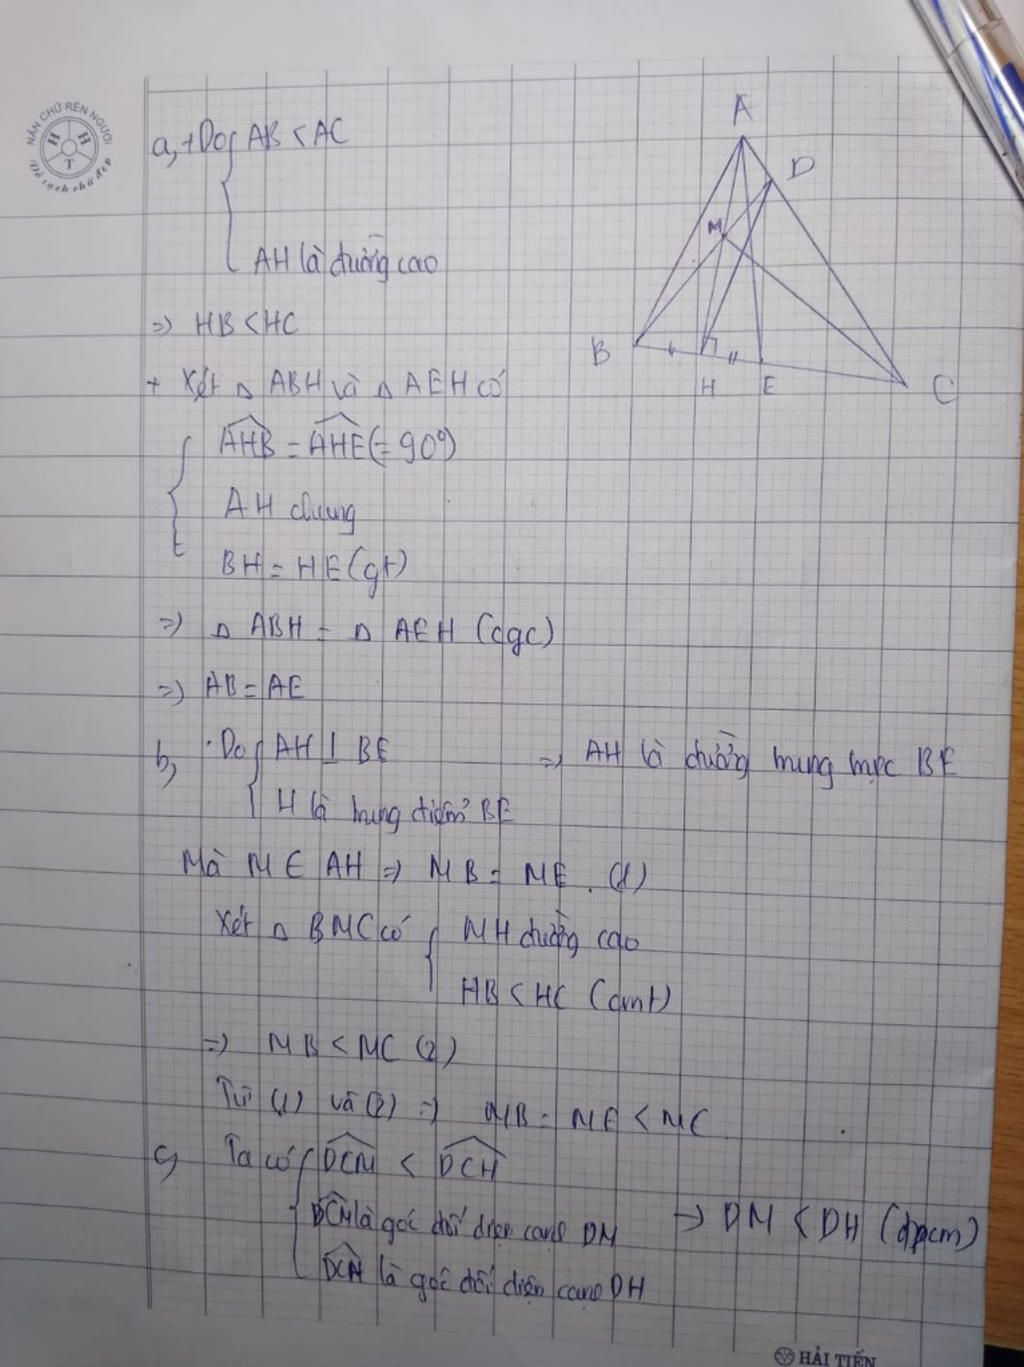 NẮN CHỮ RÈN NGƯỜI
H H
T
a, + Do { AB < AC
AH là đường cao
=> HB < HC
+ Xét △ ABH và △ AEH có
AHB = AHE (= 90°)
AH chung
BH = HE (gt)
=> △ ABH = △ AEH (cgc)
=> AB = AE
b, · Do { AH ⊥ BE => AH là đường trung trực BE
H là trung điểm BE
Mà M ∈ AH => MB = ME . (1)
Xét △ BMC có { MH đường cao
HB < HC (cmt)
=> MB < MC (2)
Từ (1) và (2) => MB = ME < MC
c, Ta có { DCM < DCH
DCM là góc đối diện cạnh DM => DM < DH (đpcm)
DCH là góc đối diện cạnh DH
A
D
M
B
H E
C
HẢI TIẾN